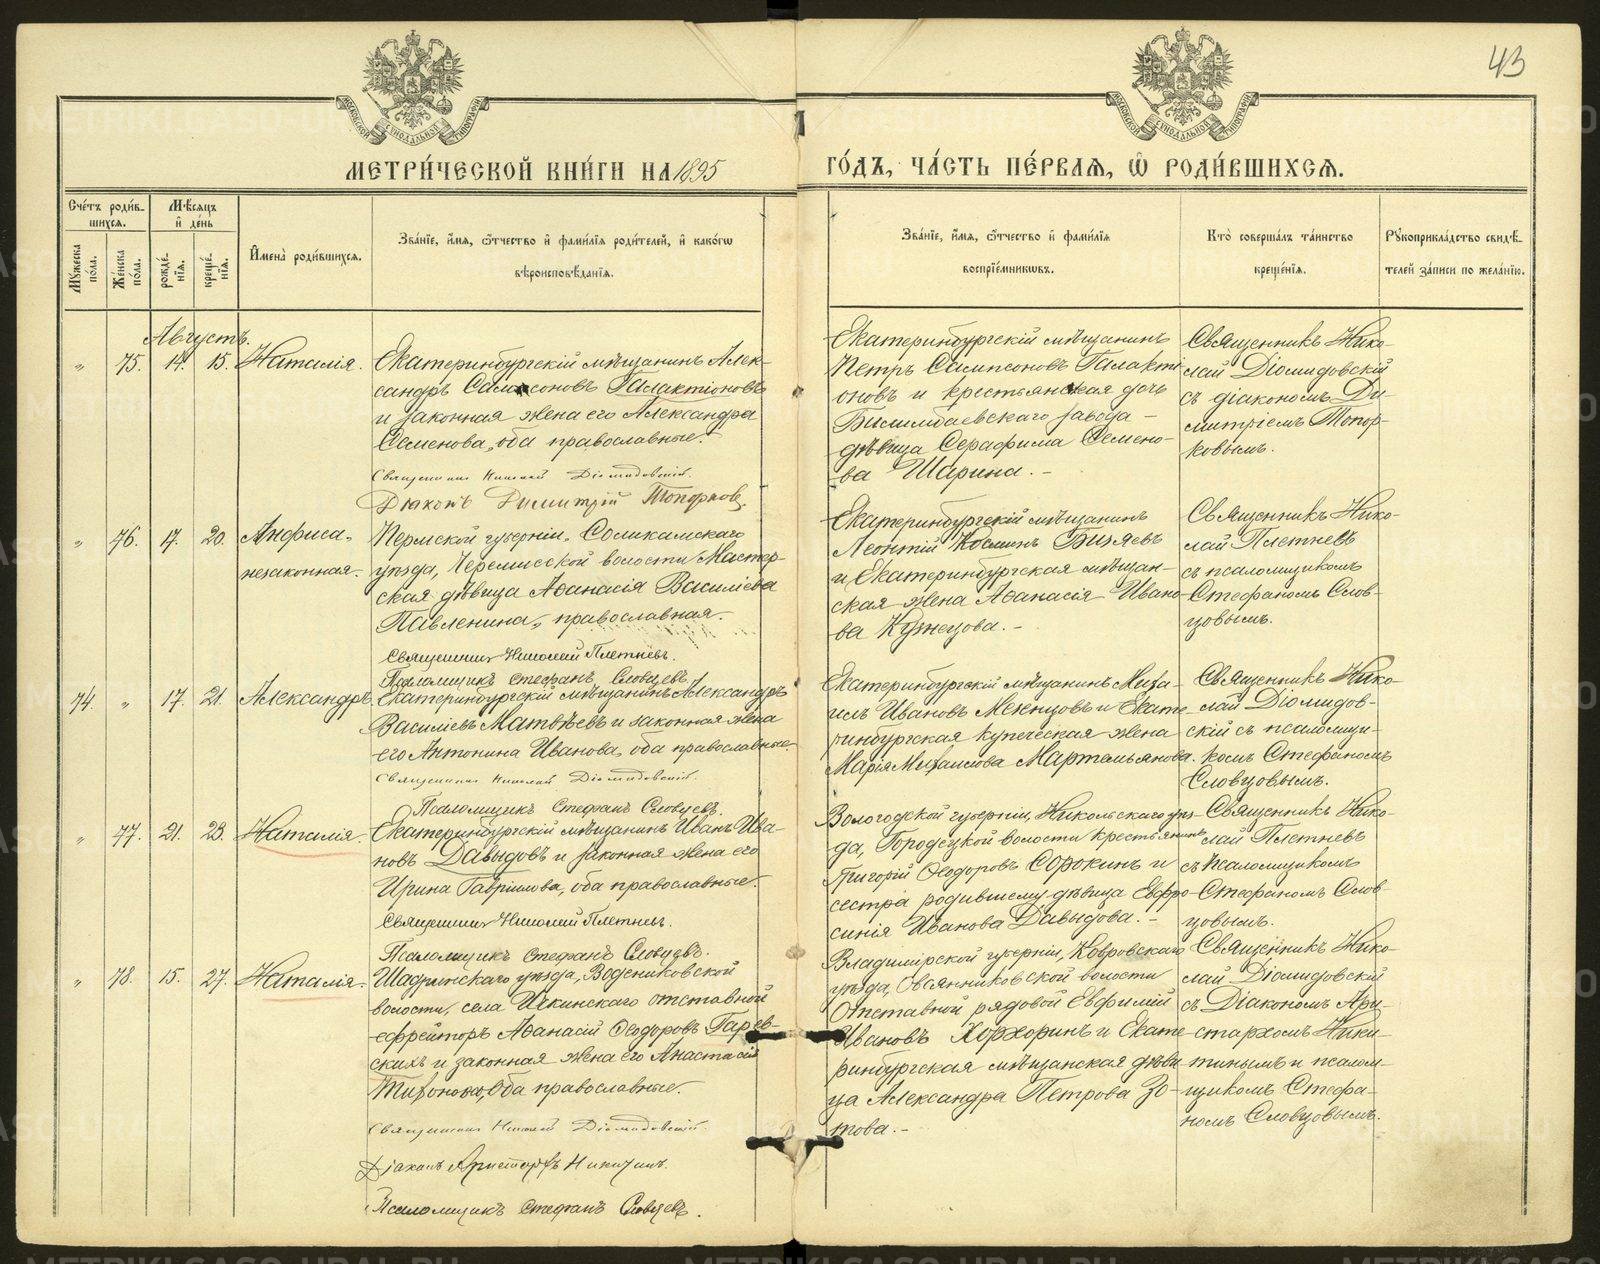 43
МЕТРИ́ЧЕСКОЙ КНИ́ГИ НА 1895
ГО́ДЪ, ЧА́СТЬ ПЕ́РВАѦ, Ѡ҆ РОДИ́ВШИХСѦ.
Сче́тъ роди́в-
шихсѧ.
Мѣ́сѧцъ
и҆ де́нь
Мꙋ́жеска по́ла.
Же́нска по́ла.
рожде́-нїѧ.
креще́-нїѧ.
И҆мена̀ роди́вшихсѧ.
Зва́нїе, и҆́мѧ, ѻ҆́тчество и҆ фами́лїѧ роди́телей, и҆ како́гѡ
вѣроисповѣ́данїѧ.
Зва́нїе, и҆́мѧ, ѻ҆́тчество и҆ фами́лїѧ
воспрїе́мникѡвъ.
Кто̀ соверша́лъ та́инство
креще́нїѧ.
Рꙋкоприкла́дство свидѣ́-
телей за́писи по жела́нїю.
Августъ.
" 75. 14. 15. Наталія.
Екатеринбургскій мѣщанинъ Алек-
сандръ Сампсоновъ Галактіоновъ
и законная жена его Александра
Семенова, оба православные.
Священникъ Николай Діомидовскій.
Діаконъ Димитрій Топорковъ.
Екатеринбургскій мѣщанинъ
Петръ Сампсоновъ Галакті
оновъ и крестьянская дочь
Билимбаевскаго завода –
дѣвица Серафима Семено-
ва Шарина. –
Священникъ Нико-
лай Діомидовскій
съ діакономъ Ди-
митріемъ Топор-
ковымъ.
" 76. 17. 20. Анфиса "
незаконная.
Пермской губерніи, Соликамскаго
уѣзда, Черемисской волости Мастер-
ская дѣвица Аѳанасія Васильева
Павленина, православная.
Священникъ Николай Плетневъ.
Псаломщикъ Стефанъ Словцевъ.
Екатеринбургскій мѣщанинъ
Леонтій Косминъ Бизяевъ
и Екатеринбургская мѣщан-
ская жена Аѳанасія Ивано-
ва Кузнецова. –
Священникъ Нико-
лай Плетневъ
съ псаломщикомъ
Стефаномъ Слов-
цовымъ.
74. " 17. 21. Александръ
Екатеринбургскій мѣщанинъ Александръ
Васильевъ Матвѣевъ и законная жена
его Антонина Иванова, оба православные.
Священникъ Николай Діомидовскій.
Псаломщикъ Стефанъ Словцевъ.
Екатеринбургскій мѣщанинъ Миха-
илъ Ивановъ и Екате-
ринбургская купеческая жена
Марія Михаилова Мартемьянова.
Священникъ Нико-
лай Діомидов-
скій съ псаломщи-
комъ Стефаномъ
Словцовымъ.
" 77. 21. 23. Наталія.
Екатеринбургскій мѣщанинъ Иванъ Ива-
новъ Давыдовъ и законная жена его
Ирина Гавріилова, оба православные.
Священникъ Николай Плетневъ.
Псаломщикъ Стефанъ Словцевъ.
Вологодской губерніи, Никольскаго уѣз
да, Городецкой волости крестьянинъ
Григорій Ѳеодоровъ Сорокинъ и
сестра родившему дѣвица Евфро-
синія Иванова Давыдова. –
Священникъ Нико-
лай Плетневъ
съ псаломщикомъ
Стефаномъ Слов-
цовымъ.
" 78. 15. 27. Наталія.
Шадринскаго уѣзда, Водениковской
волости, села Ичкинскаго отставной
ефрейторъ Аѳанасій Ѳеодоровъ Гаряв-
скихъ и законная жена его Анастасія
Тихонова, оба православные.
Священникъ Николай Діомидовскій.
Діаконъ Аристархъ Никитинъ.
Псаломщикъ Стефанъ Словцевъ.
Владимірской губерніи, Ковровскаго
уѣзда, Овсянниковской волости
отставной рядовой Евфимій
Ивановъ Хорхоринъ и Екате-
ринбургская мѣщанская дѣви-
ца Александра Петрова Зо-
това. –
Священникъ Нико-
лай Діомидовскій
съ Діакономъ Ари-
стархомъ Ники-
тинымъ и псалом-
щикомъ Стефа-
номъ Словцовымъ.